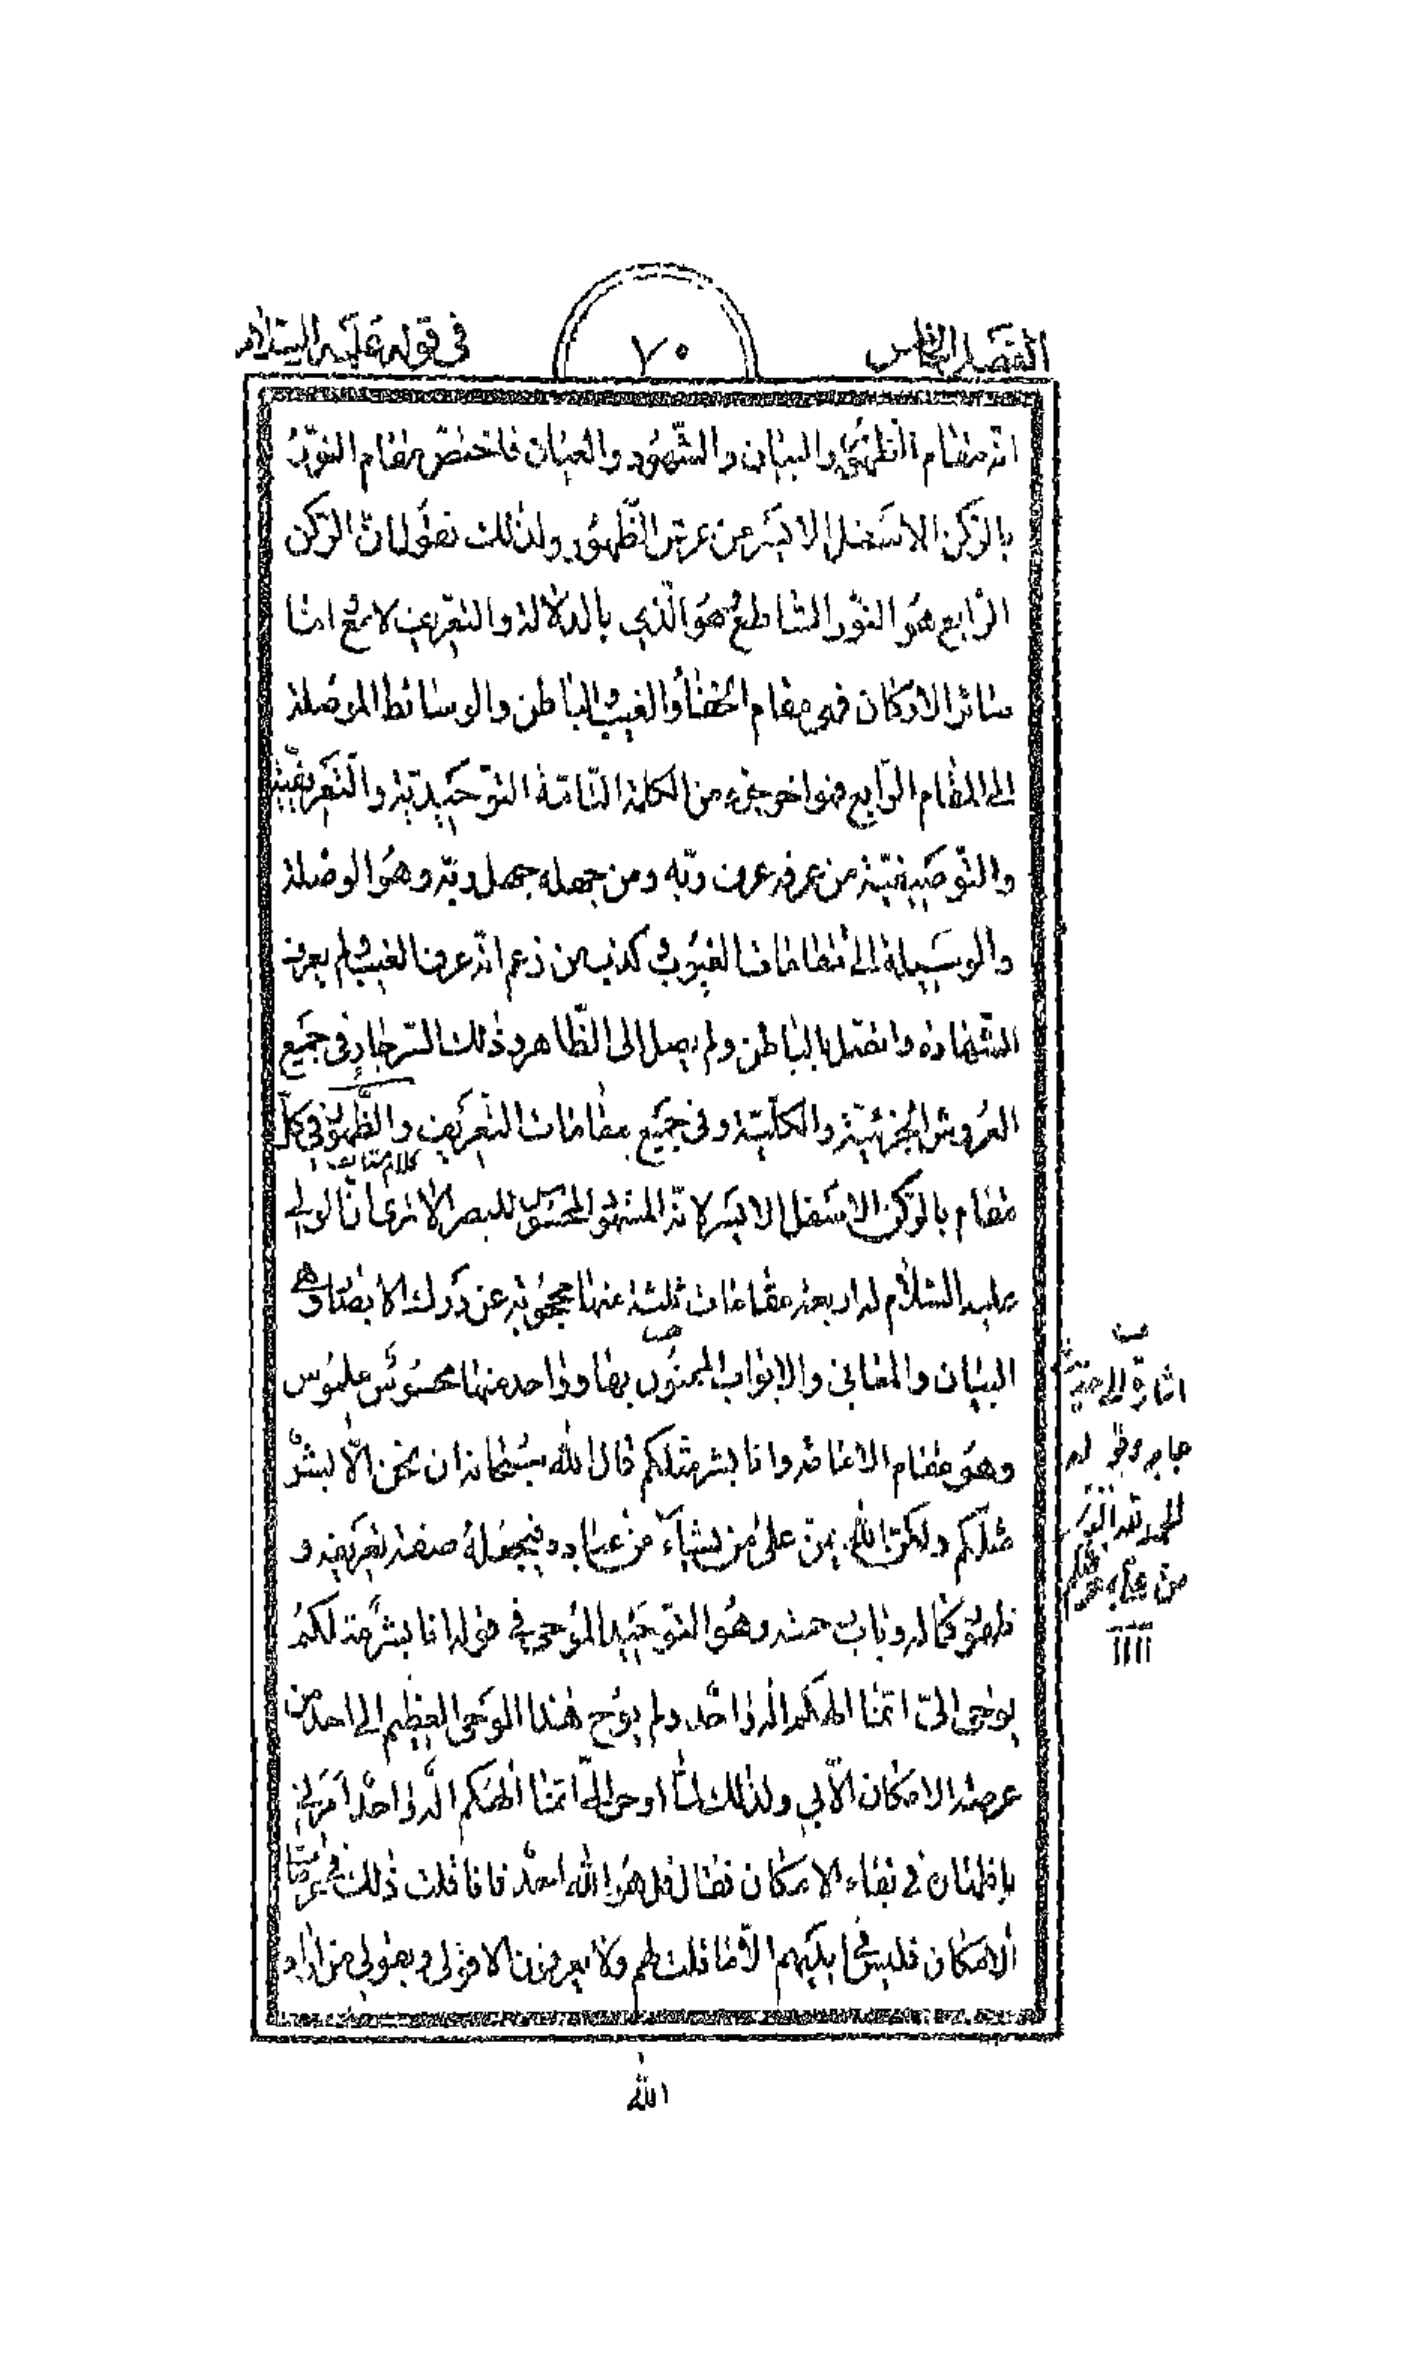 الفصل الخامس
٧٠
فى قوله عليه السلام
انه مقام الظهور والبيان والشهود والعيان فاختص مقام النور
بالركن الاسفل الايسر من عرش الظهور ولذلك نقول ان الركن
الرابع هو النور الساطع وهو الذي بالدلالة والتعريف لامع اما
سائر الاركان فهى مقام الخفاء والغيب الباطن والوسائط الموصلة
الى المقام الرابع فهو اخر جزء من الكلمة التامة التوحيدية والتعريفية
والتوصيفية من عرفه عرف ربه ومن جهله جهل ربه وهو الوصلة
والوسيلة الى مقامات الغيوب كذب من زعم انه عرف الغيب ولم يعرف
الشهادة واتصل بالباطن ولم يصل الى الظاهر وذلك السر جار في جميع
العروش الجزئية والكلية وفى جميع مقامات التعريف والظهور في كل
مقام بالركن الاسفل الايسر لانه المشهود المحسوس للبصر الا ترى ان الولي
عليه السلام له اربعة مقامات ثلثة منها محجوبة عن درك الابصار وهي
البيان والمعاني والابواب المبمنون بها وواحد منها محسوس ملموس
وهو مقام الامامة وانا بشر مثلكم قال الله سبحانه ان نحن الا بشر
مثلكم ولكن الله يمن على من يشاء من عباده فيجعله صفة تعريفه و
ظهور كماله وباب وهو التوحيد الموحى في قوله انا بشر مثلكم
يوحى الي انما الهكم اله واحد ولم يوح هذا الوحى العظيم الى احد من
عرصة الامكان الا بي ولذلك لما اوحى الي انما الهكم اله واحد امرني
في بقاء الامكان فقال قل هو الله احد فانا قلت ذلك
الامكان فليس في ايديهم الا ما قلت لهم ولا يعرفون الا قولي وبقولي من اراد
الله
كلام
اشارة الى حديث
جابر وقوله
من عباده